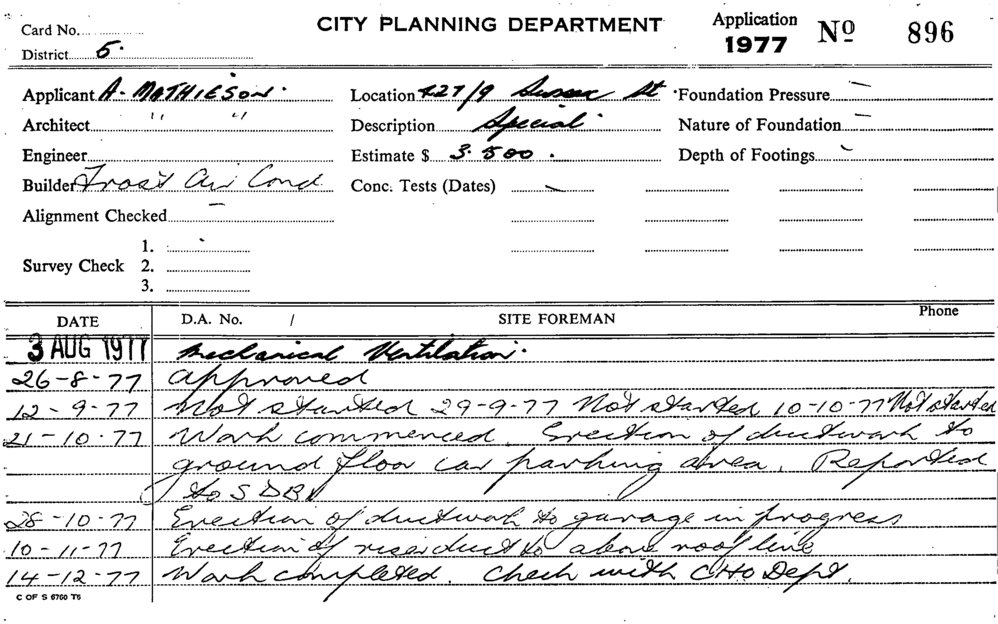 Card No. CITY PLANNING DEPARTMENT Application 1977 Nº 896
District 5.
Applicant A. MATHIESON. Location 427/9 Sussex St Foundation Pressure —
Architect " " Description Special Nature of Foundation —
Engineer Estimate $ 3.500. Depth of Footings
Builder Frost Air Cond Conc. Tests (Dates) —
Alignment Checked —
1.
Survey Check 2.
3.
DATE D.A. No. / SITE FOREMAN Phone
3 AUG 1977 Mechanical Ventilation.
26-8-77 Approved
12-9-77 Not started 29-9-77 Not started 10-10-77 Not started
21-10-77 Work commenced. Erection of ductwork to
ground floor car parking area. Reported
to S D B I
28-10-77 Erection of ductwork to garage in progress
10-11-77 Erection of riser duct to above roof line
14-12-77 Work completed. Check with CHO Dept.
C OF S 6760 T6